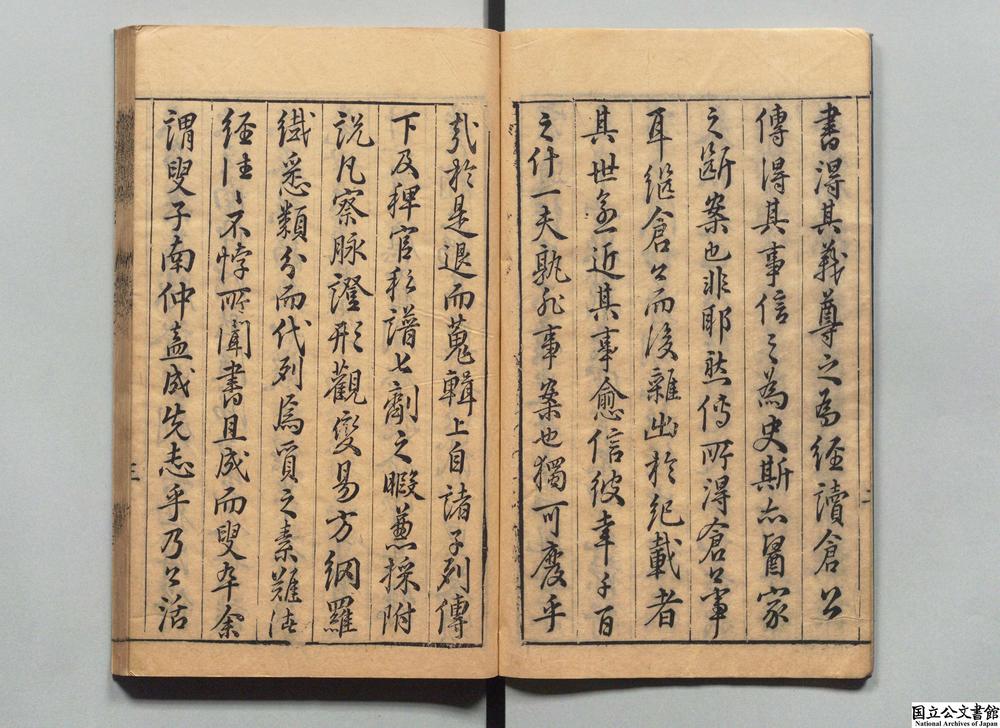 書得其義尊之為經讀倉公
傳得其事信之為史斯亦醫家
之斷案也非耶然傳所得倉公事
耳繼倉公而後雜出於紀載者
其世愈近其事愈信彼幸千百
之什一夫孰非事案也獨可廢乎
哉於是退而蒐輯上自諸子列傳
下及稗官私譜七劑之暇兼採附
說凡察脉證形觀變易方網羅
纖悉類分而代列焉質之素難諸
經往〻不悖所聞書且成而叟卒余
謂叟子南仲盍成先志乎乃公活
二
三
国立公文書館
National Archives of Japan